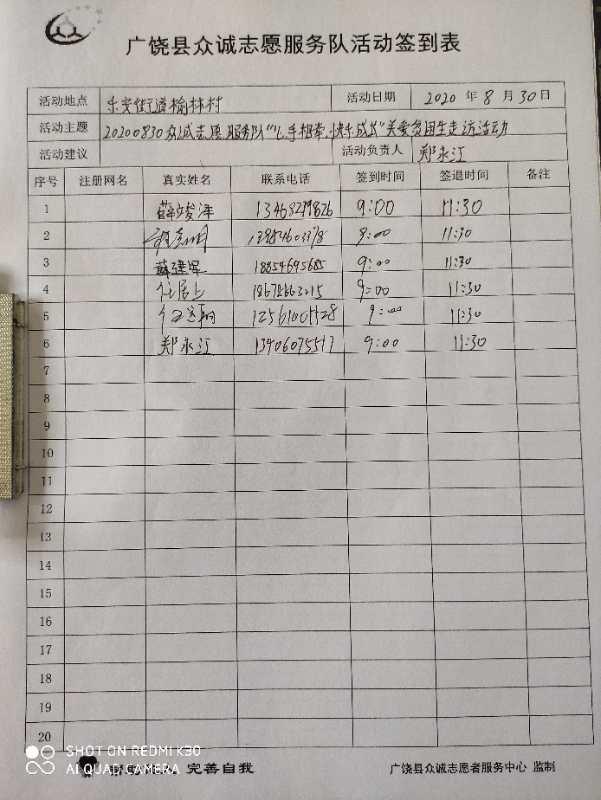 广饶县众诚志愿服务队活动签到表
活动地点 乐安街道榆林村 活动日期 2020 年 8 月 30 日
活动主题 20200830众诚志愿服务队"心手相牵.快乐成长"关爱贫困生走访活动
活动建议 活动负责人 郑永江
序号 注册网名 真实姓名 联系电话 签到时间 签退时间 备注
1 薛峻泽 9:00 11:30
2 9:00 11:30
3 薛建军 18854695685 9:00 11:30
4 9:00 11:30
5 9:00 11:30
6 郑永江 9:00 11:30
7
8
9
10
11
12
13
14
15
16
17
18
19
20
完善自我 广饶县众诚志愿者服务中心 监制
SHOT ON REDMI K30
AI QUAD CAMERA